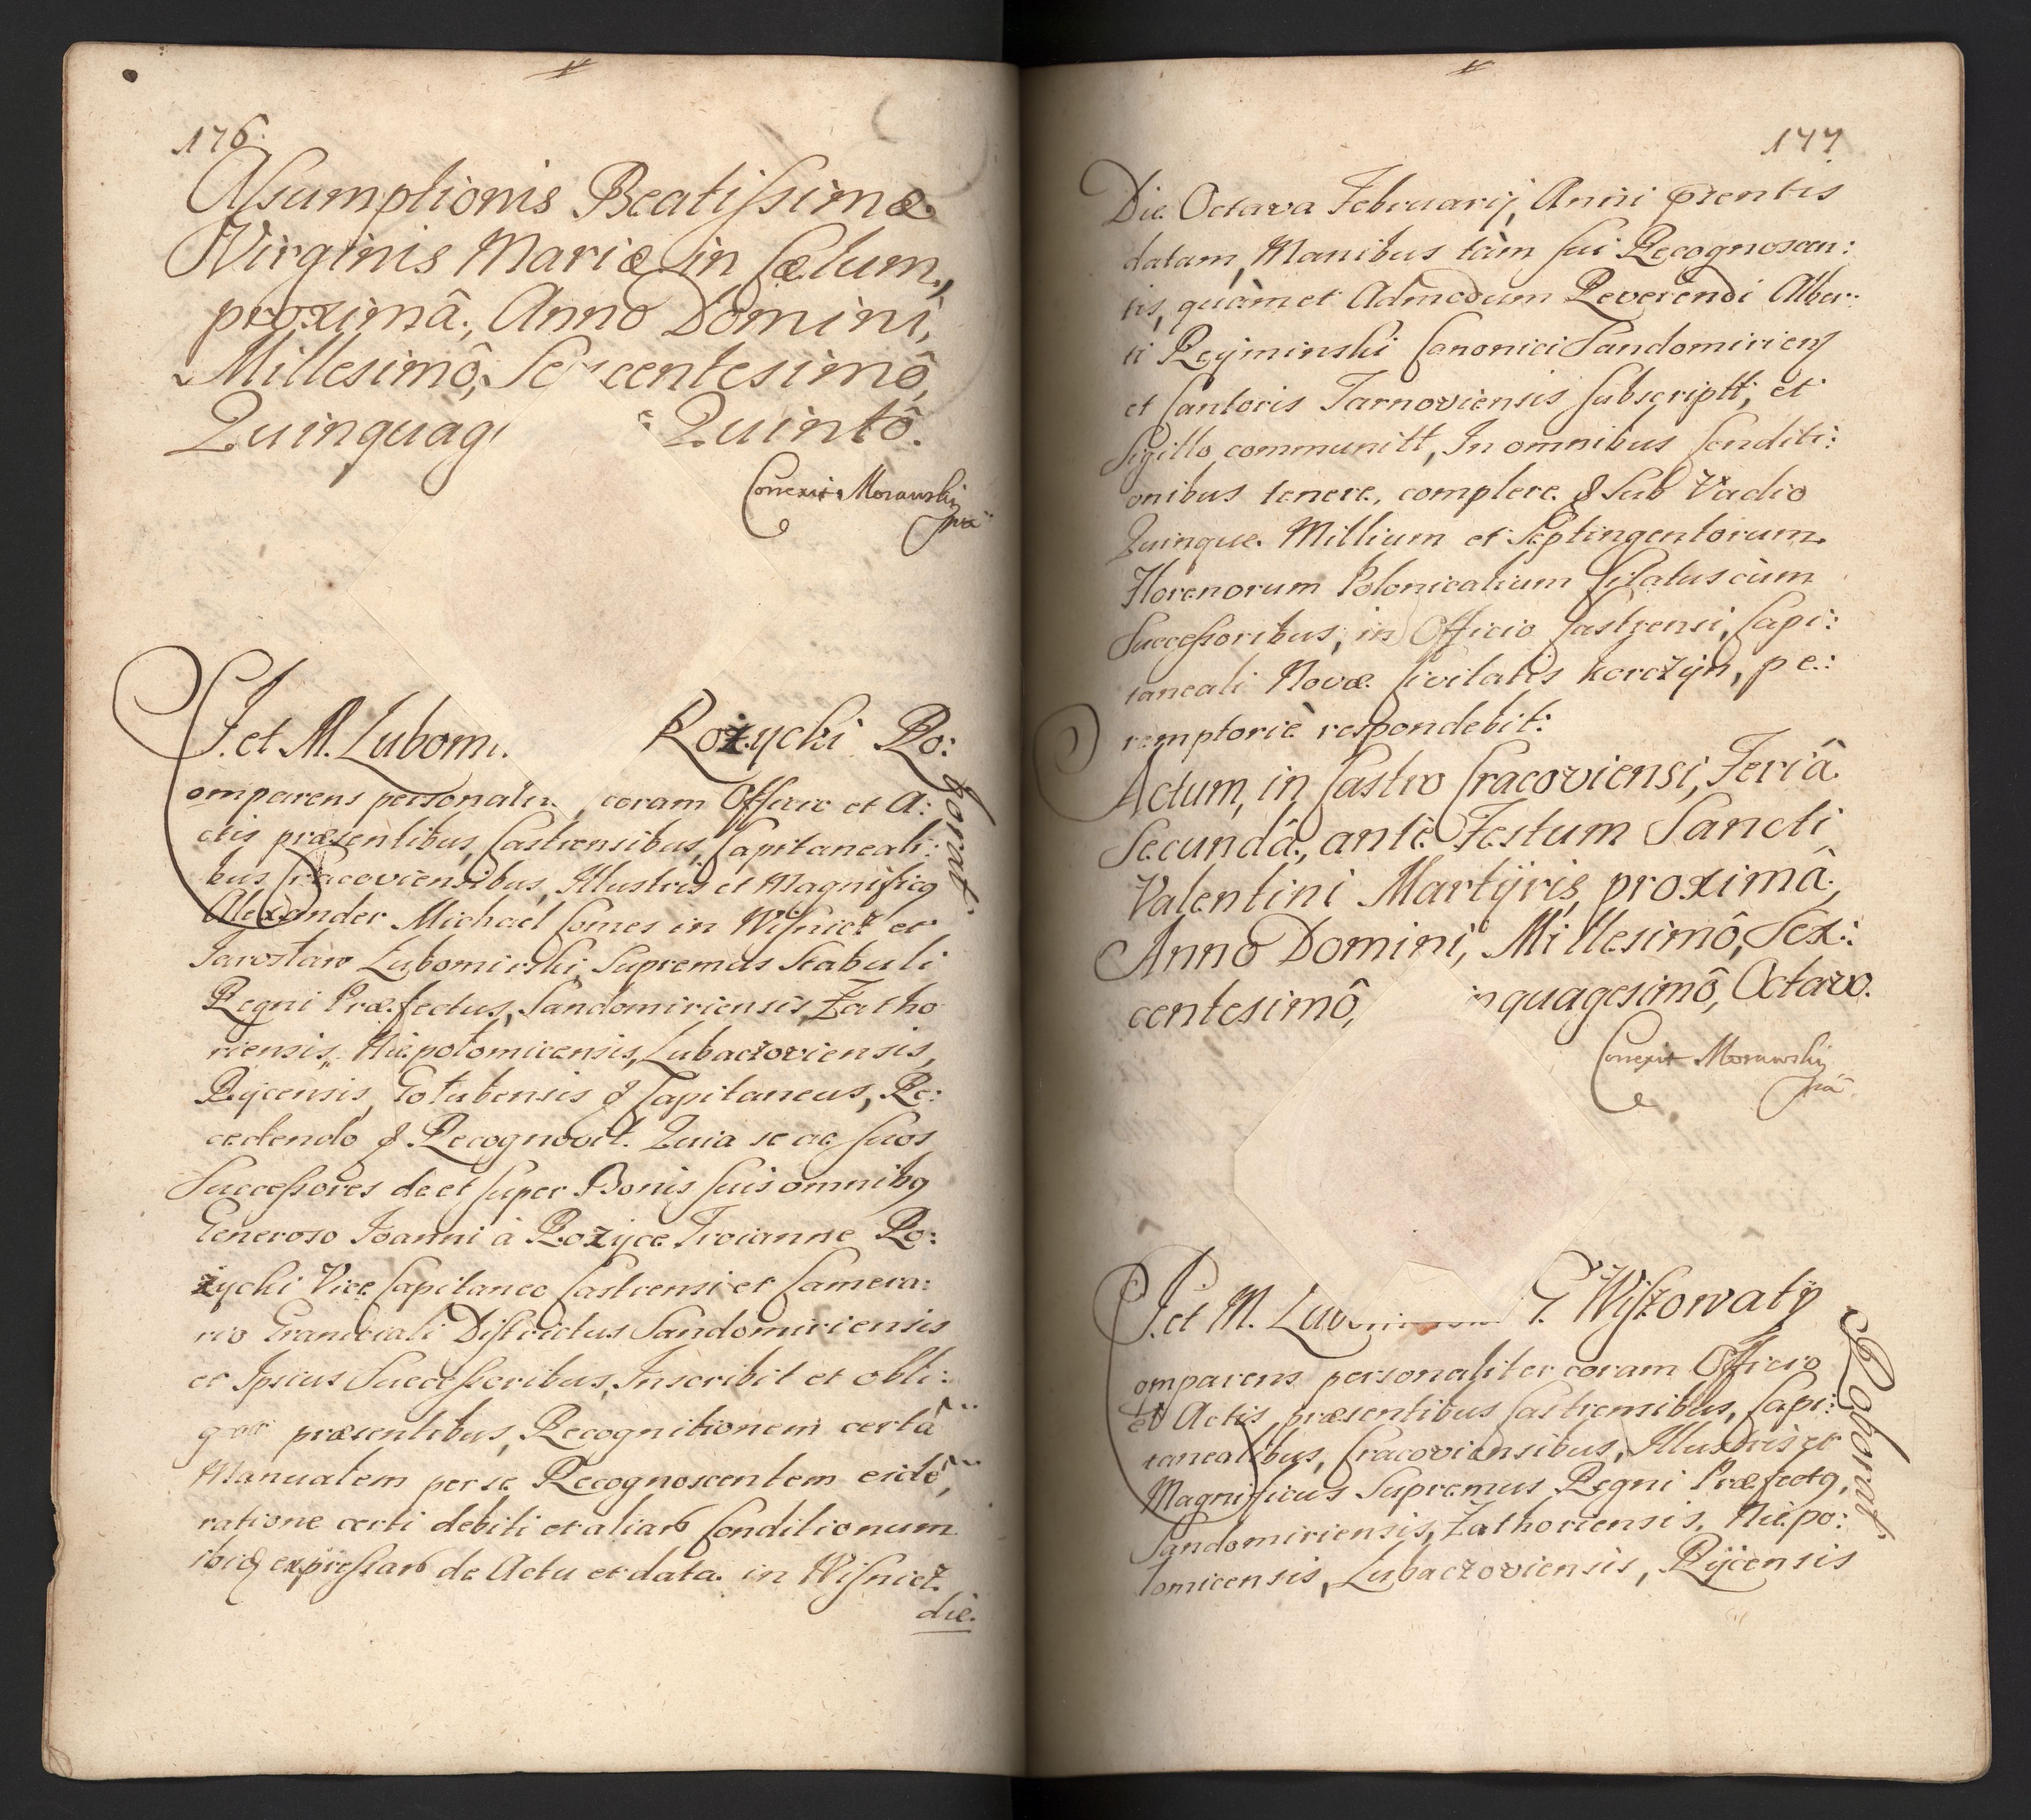 176.
Assumptionis Beatissimæ
Virginis Mariæ in Cælum,
proximâ, Anno Domini,
Millesimô, Sexcentesimô,
Quinquag Quintô.
Correxit Morawski
mp
I. et M. Lubom. Rożycki Ro:
borat.
omparens personaliter coram Officio et A:
ctis præsentibus, Castrensibus, Capitaneali:
bus Cracoviensibus, Illustris et Magnificq
Alexander Michael Comes in Wiśnicz et
Jarosław Lubomirski, Supremus Stabuli
Regni Præfectus, Sandomiriensis, Zatho
riensis, Niepolomicensis, Lubaczoviensis,
Rycensis, Golubensis & Capitaneus, Re:
cedendo & Recognovit. Quia se ac suos
Successores de et super Bonis suis omnibq
Generoso Joanni à Rożyce Troianne Ro:
życki Vice Capitaneo Castrensi et Camera:
rio Graniciali Districtus Sandomiriensis
et Ipsius Successoribus, Inscribit et obli:
gat præsentibus, Recognitionem certã
Manualem per se Recognoscentem eidẽ,
ratione certi debiti et aliarũ Conditionum
ibid expressarũ de Actu et data in Wiśnicz
die
177.
Die Octava Februarij, Anni prentis
datam, Manibus tàm sui Recognoscen:
tis, quàm et Admodum Reverendi Alber:
ti Reyminski Canonici Sandomiriens
et Cantoris Tarnoviensis subscriptt, et
Sigillo communitt, In omnibus Conditi:
onibus tenere, complere & Sub Vadio
Quinque Millium et Septingentorum
Florenorum Polonicalium Citatus cùm
Successoribus, in Officio Castrensi, Capi:
taneali Novæ Civitatis Korczyn, pe:
remptoriè respondebit:
Actum, in Castro Cracoviensi, Feriâ
Secundâ, antè Festum Sancti
Valentini Martyris, proximâ,
Anno Domini, Millesimô, Sex:
centesimô, nquagesimô, Octavo.
Correxit Morawski
mp
I. et M. Lubomirski G. Wiszowaty
Roborat.
omparens personaliter coram Officio
et Actis, præsentibus Castrensibus, Capi:
tanealibus, Cracoviensibus, Illustris et
Magnificus Supremus Regni Præfectq,
Sandomiriensis, Zathoriensis, Niepo:
lomicensis, Lubaczoviensis, Rycensis